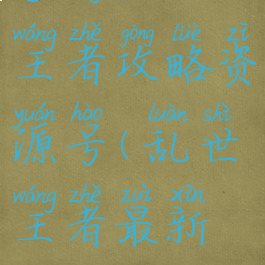 wáng zhě gōng lüè zī
王者攻略资
yuán hào luàn shì
源号(乱世
wáng zhě zuì xīn
王者最新